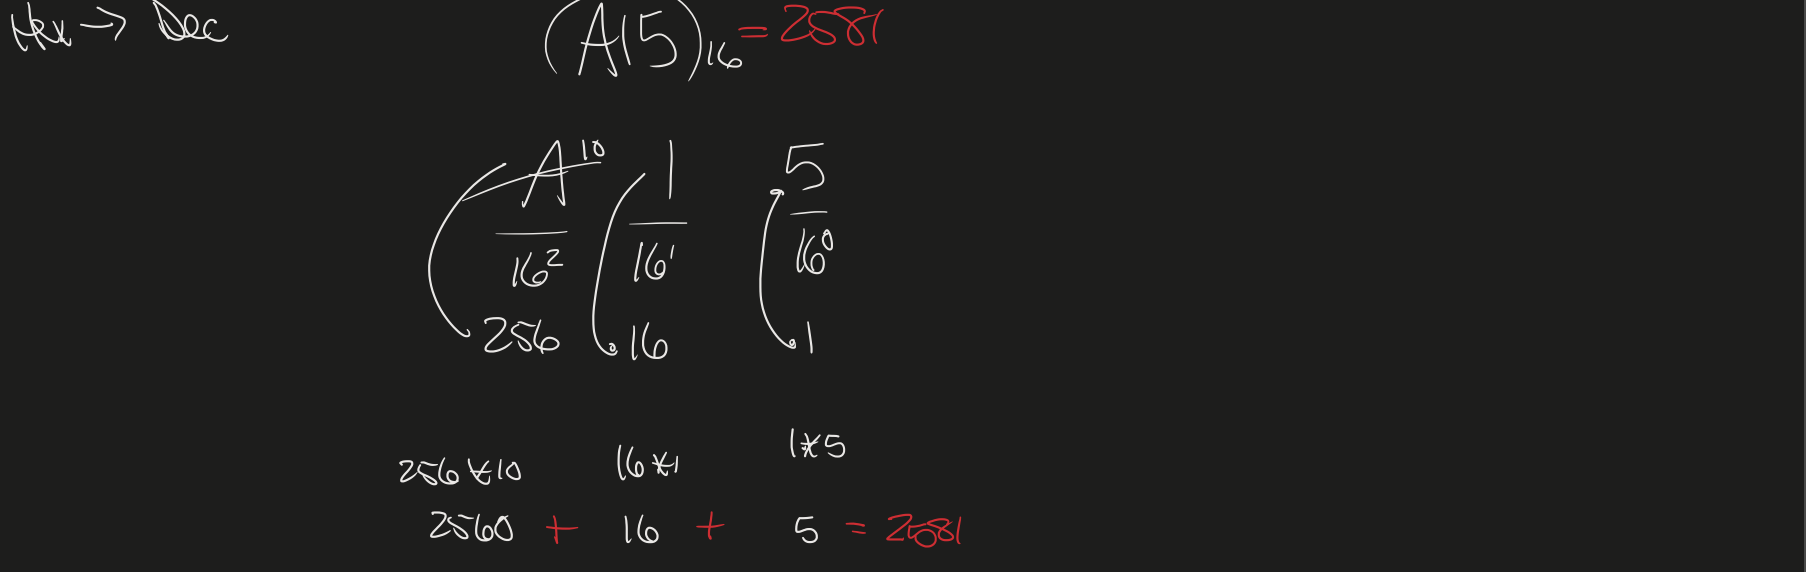 Hex → Dec (A15)₁₆ = 2581
A¹⁰ 1 5
16² 16¹ 16⁰
256 16 1
256*10 16*1 1*5
2560 + 16 + 5 = 2581